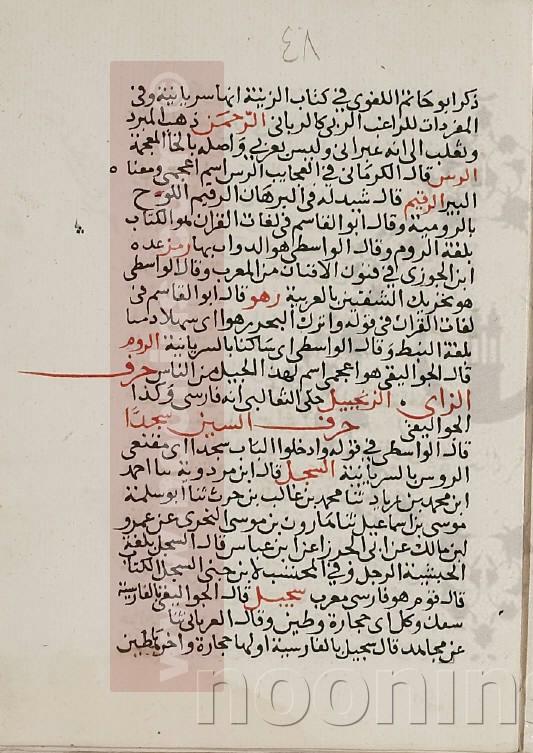 ٤٨
ذكر ابو حاتم اللغوى فى كتاب الزينة انها سريانية وفى
المفردات للراغب الربى كالربانى الرحمن ذهب المبرد
وثعلب الى انه عبرانى وليس بعربى واصله بالخا المعجمة
الرس قال الكرمانى فى العجايب الرس اسم اعجمى ومعناه
البير الرقيم قال شيدله فى البرهان الرقيم اللوح
بالرومية وقال ابو القاسم فى لغات القران هو الكتاب
بلغة الروم وقال الواسطى هو الدواب بها رمز عده
ابن الجوزى فى فنون الافنان من المعرب وقال الواسطى
هو تحريك الشفتين بالعربية رهو قال ابو القاسم فى
لغات القران فى قوله واترك البحر رهوا اى سهلا دمثا
بلغة النبط وقال الواسطى اى ساكنا بالسريانية الروم
قال الجواليقى هو اعجمى اسم لهذا الجيل من الناس حرف
الزاى الزنجبيل حكى الثعالبى انه فارسى وكذا
الجواليقى حرف السين سجدا
قال الواسطى فى قوله وادخلوا الباب سجدا اى مقنعى
الروس بالسريانية السجل قال ابن مردوية نا احمد
ابن محمد بن زياد ثنا محمد بن غالب بن حرث ثنا ابو سلمة
موسى بن اسماعيل ثنا هارون بن موسى النحوى عن عمرو
ابن مالك عن ابى الجوزا عن ابن عباس قال السجل بلغة
الحبشية الرجل وفى المحتسب لابن جنى السجل الكتاب
قال قوم هو فارسى معرب سجيل قال الجواليقى بالفارسية
سنك وكل اى حجارة وطين وقال الفريابى ثنا
عن مجاهد قال سجيل بالفارسية اولها حجارة واخرها طين
noonin